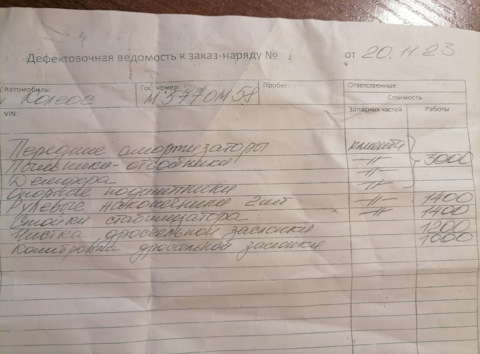 Дефектовочная ведомость к заказ-наряду № от 20.11.23
Автомобиль: Колеос Гос. номер: М377ОМ59 Пробег: Ответственные:
Стоимость
VIN: Запасных частей Работы
Передние амортизаторы клиента
Пыльники-отбойники -//- 3000
-//-
Опорные подшипники -//-
Рулевые наконечники 2шт -//- 1400
Стойки стабилизатора -//- 1400
Чистка дроссельной заслонки 1200
Калибровка дроссельной заслонки 1000